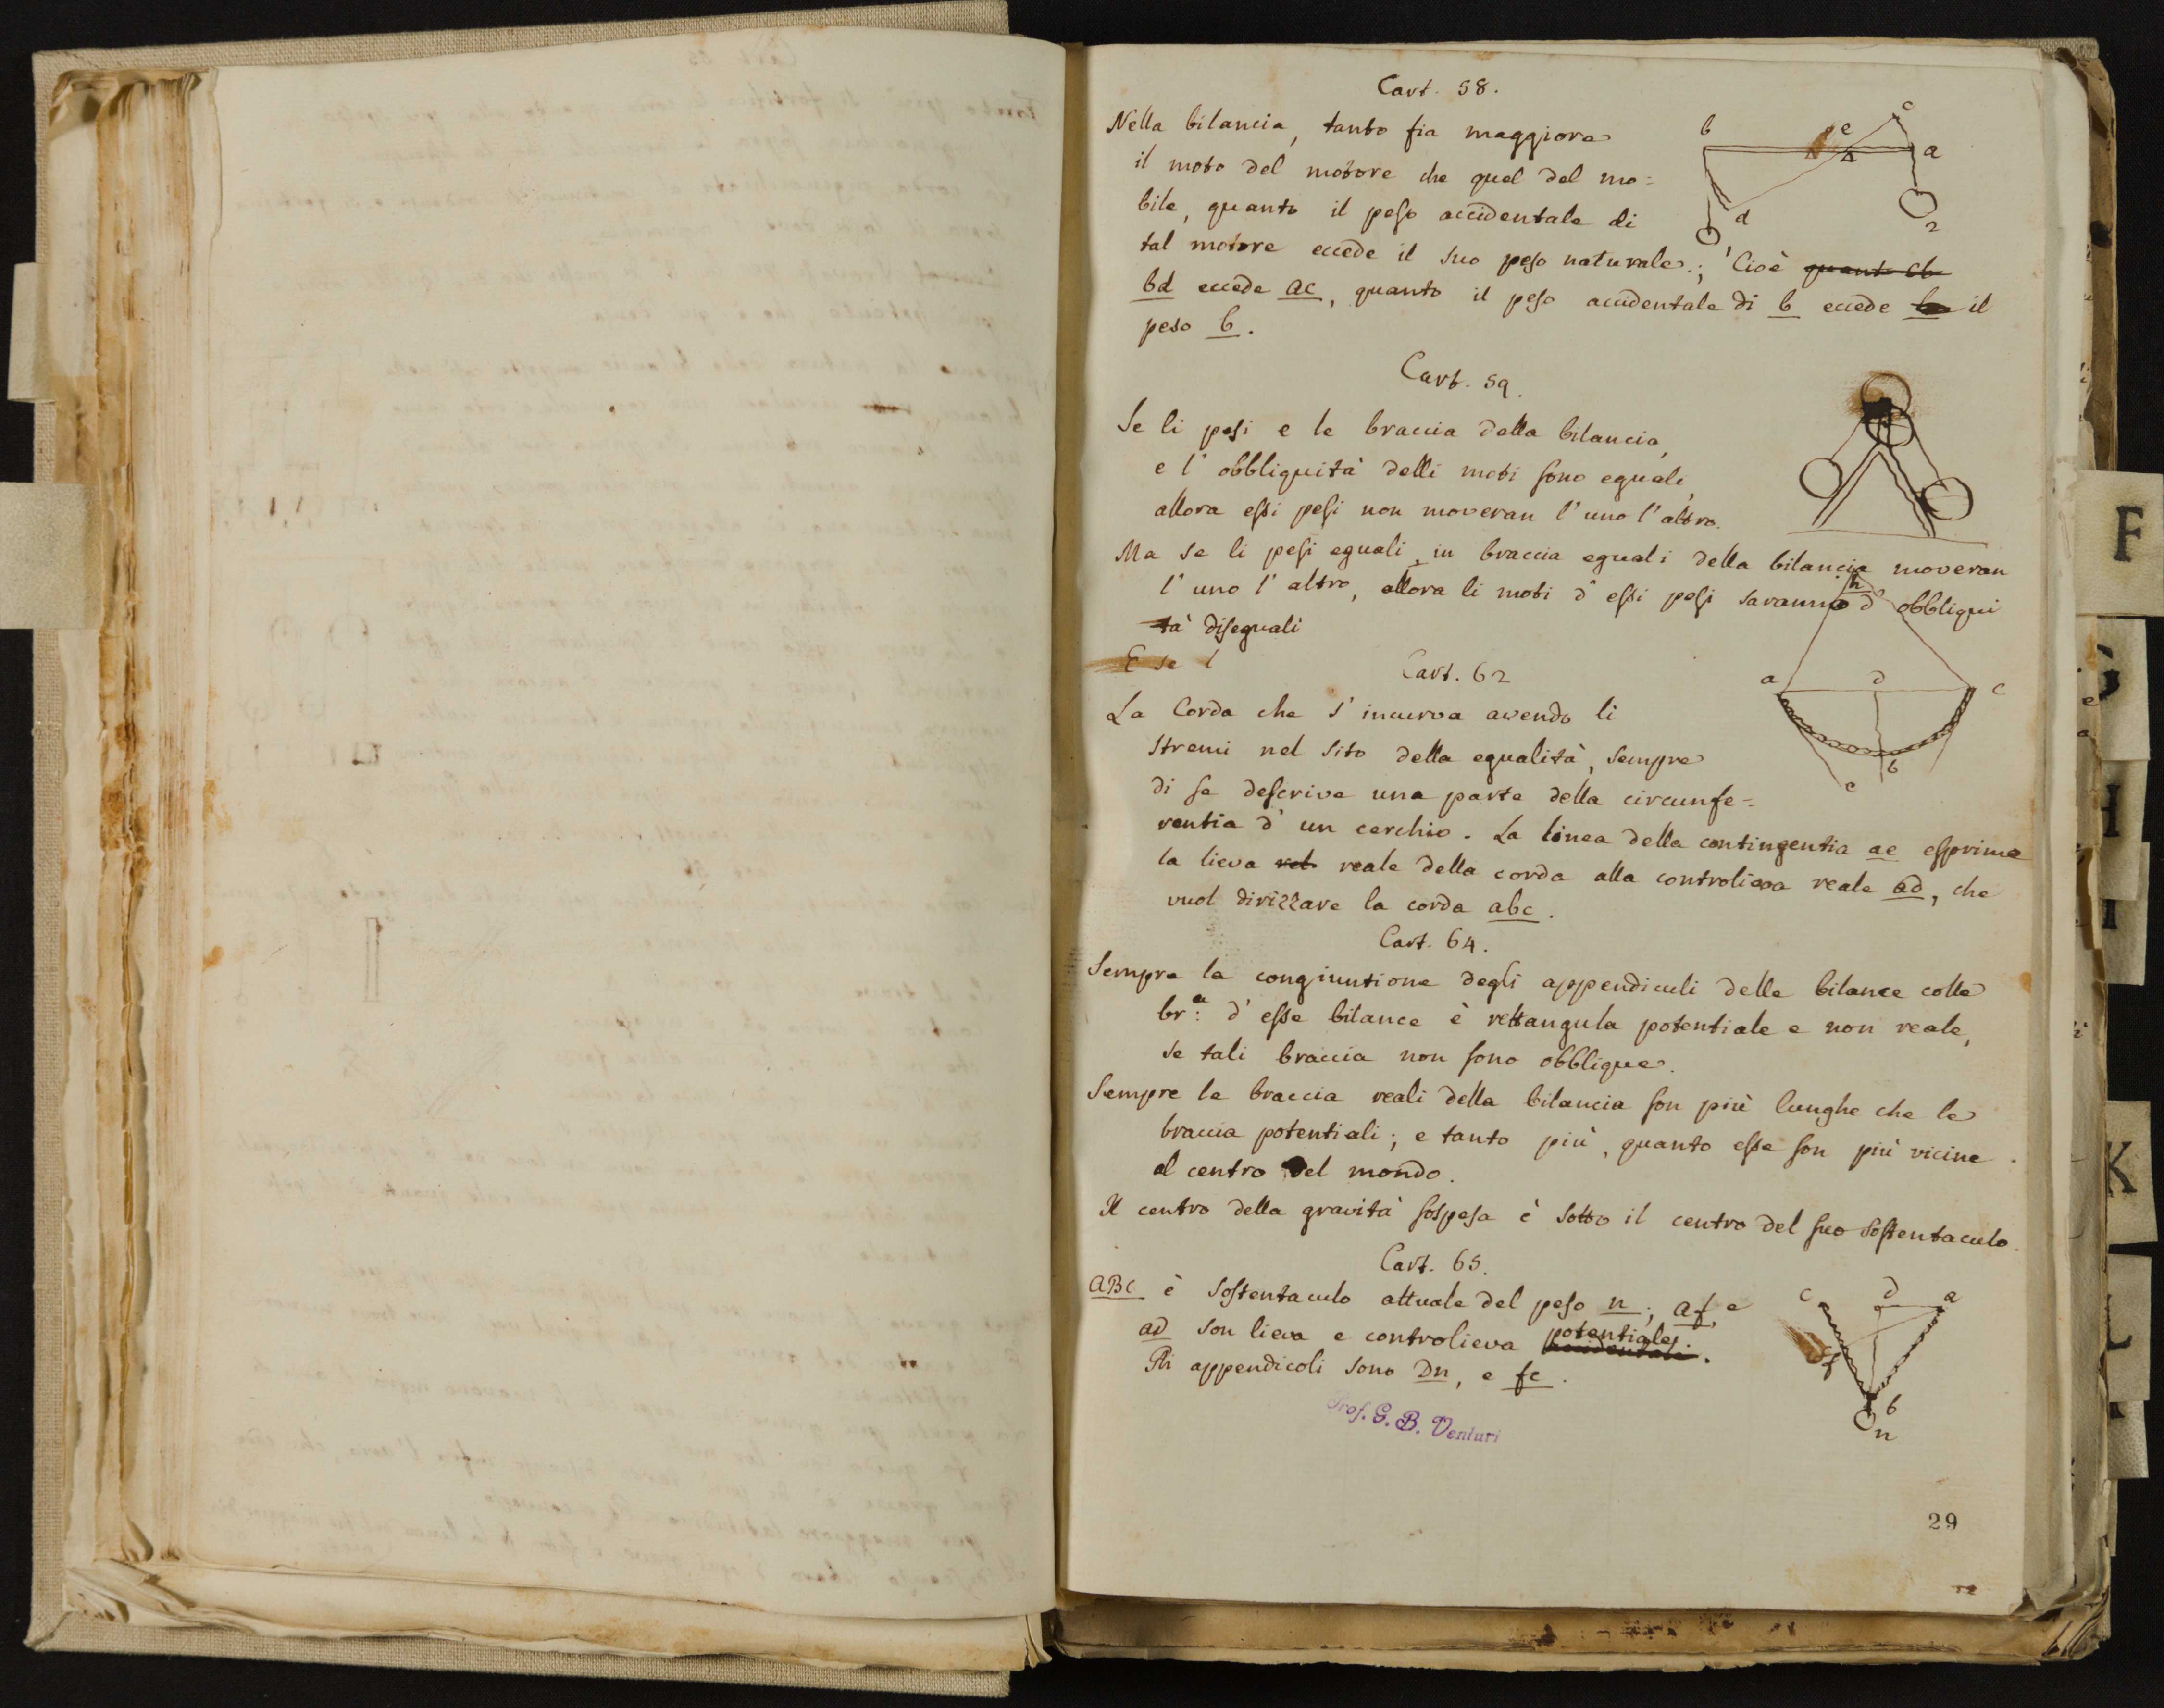 Cart. 58.
Nella bilancia, tanto fia maggiore
il moto del motore che quel del mo=
bile, quanto il peso accidentale di
tal motore eccede il suo peso naturale; Cioè
bd eccede ac, quanto il peso accidentale di b eccede il
peso b.
b
e
c
a
d
1
2
Cart. 59.
Se li pesi e le braccia della bilancia,
e l' obbliquità delli moti sono eguali,
allora essi pesi non moveran l' uno l' altro.
Ma se li pesi eguali, in braccia eguali della bilancia moveran
l' uno l' altro, allora li moti d' essi pesi saranno d' obbliqui
tà diseguali
E se l
Cart. 62
La Corda che s' incurva avendo li
stremi nel sito della egualità, sempre
di se descrive una parte della circunfe=
rentia d' un cerchio. La linea della contingentia ae esprime
la lieva reale della corda alla controlieva reale ad, che
vuol dirizzare la corda abc.
h
a
d
c
b
e
Cart. 64.
Sempre la congiuntione degli appendiculi delle bilance colle
br.a d' esse bilance è rettangula potentiale e non reale,
se tali braccia non sono obblique.
Sempre le braccia reali della bilancia son più lunghe che le
braccia potentiali; e tanto più, quanto esse son più vicine
al centro del mondo.
Il centro della gravità sospesa è sotto il centro del suo sostentaculo.
Cart. 65.
ABC è sostentaculo attuale del peso n; af e
ad son lieva e controlieva potentiale.
Gli appendicoli sono Dn, e fc.
c
d
a
f
b
n
Prof. G. B. Venturi
29
F
H
I
K
L